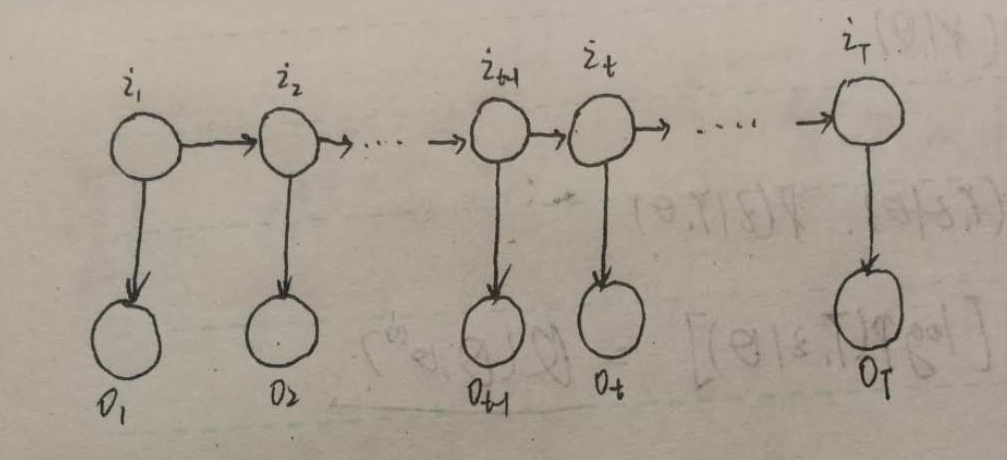 i₁ i₂ iₜ₋₁ iₜ i_T
···· ····
o₁ o₂ oₜ₋₁ oₜ o_T